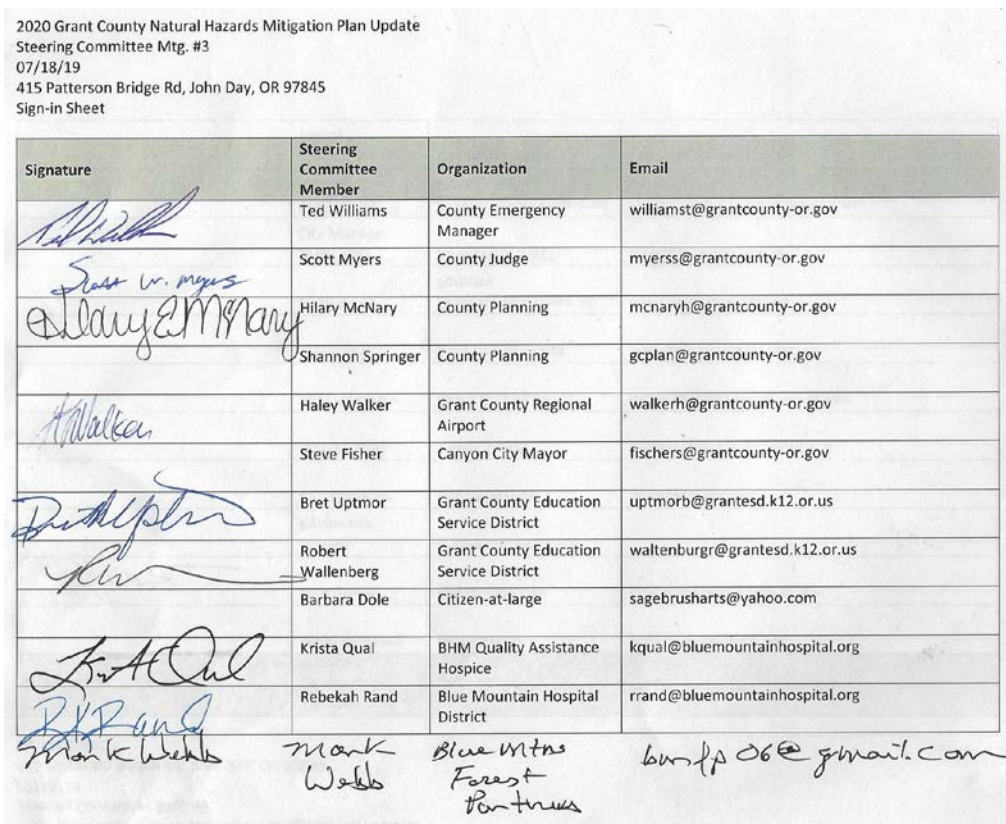 2020 Grant County Natural Hazards Mitigation Plan Update
Steering Committee Mtg. #3
07/18/19
415 Patterson Bridge Rd, John Day, OR 97845
Sign-in Sheet
Signature Steering Committee Member Organization Email
Ted Williams County Emergency Manager williamst@grantcounty-or.gov
Scott W. Myers Scott Myers County Judge myerss@grantcounty-or.gov
Hilary E McNary Hilary McNary County Planning mcnaryh@grantcounty-or.gov
Shannon Springer County Planning gcplan@grantcounty-or.gov
HWalker Haley Walker Grant County Regional Airport walkerh@grantcounty-or.gov
Steve Fisher Canyon City Mayor fischers@grantcounty-or.gov
Bret Uptmor Grant County Education Service District uptmorb@grantesd.k12.or.us
Robert Wallenberg Grant County Education Service District waltenburgr@grantesd.k12.or.us
Barbara Dole Citizen-at-large sagebrusharts@yahoo.com
Krista Qual BHM Quality Assistance Hospice kqual@bluemountainhospital.org
Rebekah Rand Blue Mountain Hospital District rrand@bluemountainhospital.org
Mark Webb Mark Webb Blue Mtns Forest Partners bmfp06@gmail.com